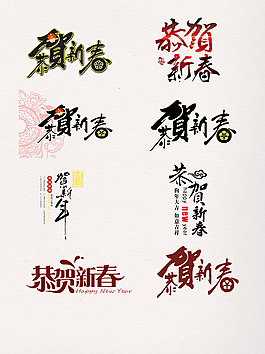 恭賀新春
恭賀
新春
恭賀新春
恭賀新春
賀新年
恭賀新春
happy
new year
狗年大吉 如意吉祥
恭贺新春
Happy New Year
恭賀新春